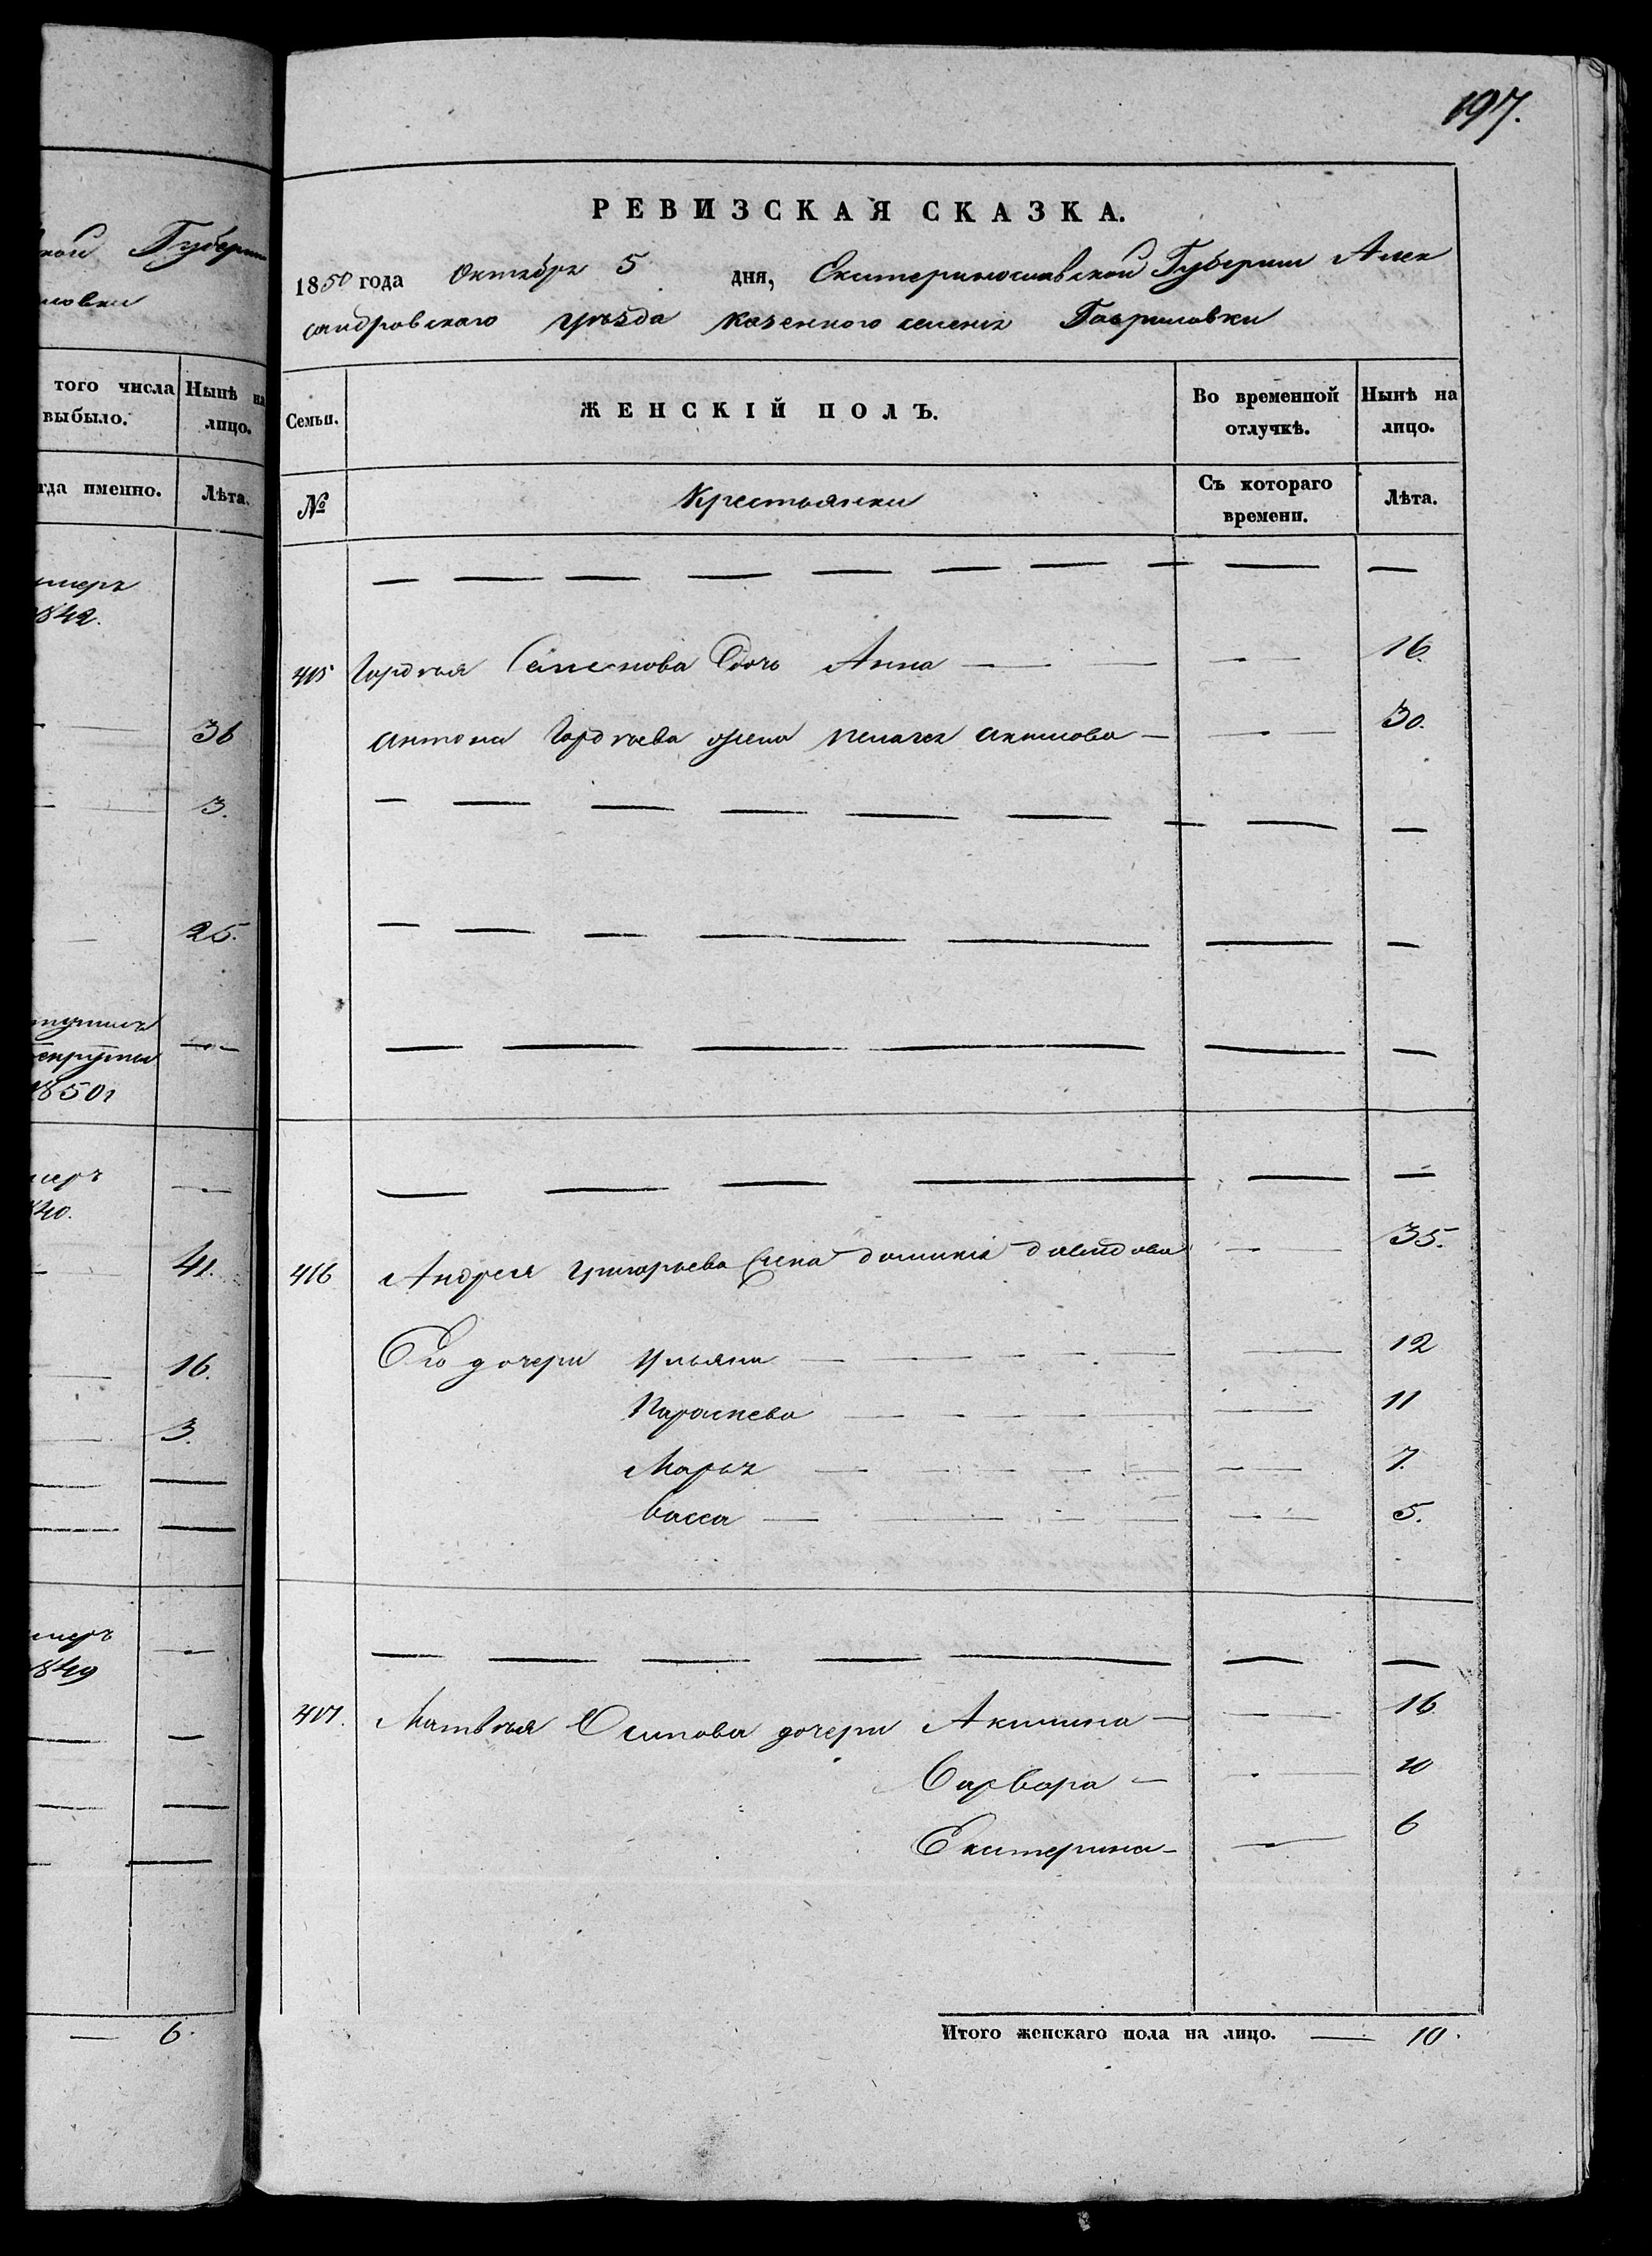 197.
кой Губерни
ловки
того числа Нынѣ на
выбыло. лицо.
гда именно. Лѣта.
умеръ
1842.
36
3.
25.
1850г
40.
41.
16.
3.
1849
6.
РЕВИЗСКАЯ СКАЗКА.
1850 года Октября 5 дня, Екатеринославской Губернии Алек
сандровского уѣзда казенного селения Гавриловки
Семьи. ЖЕНСКІЙ ПОЛЪ. Во временной отлучкѣ. Нынѣ на лицо.
№ Крестьянки Съ котораго времени. Лѣта.
415 Гордѣя Семенова дочь Анна 16.
Антона Гордѣева жена Пелагея Акимова 30.
416 Андрея Григорьева жена Домникия Давидова 35.
Его дочери Ульяна 12
Параскева 11
Марья 7.
Васса 5.
417. Матвѣя Осипова дочери Акилина 16
Варвара 10
Екатерина 6
Итого женскаго пола на лицо. 10.